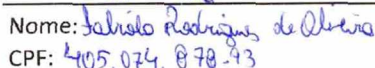 Nome: Fabíola Rodrigues de Oliveira
CPF: 405.074.878-93